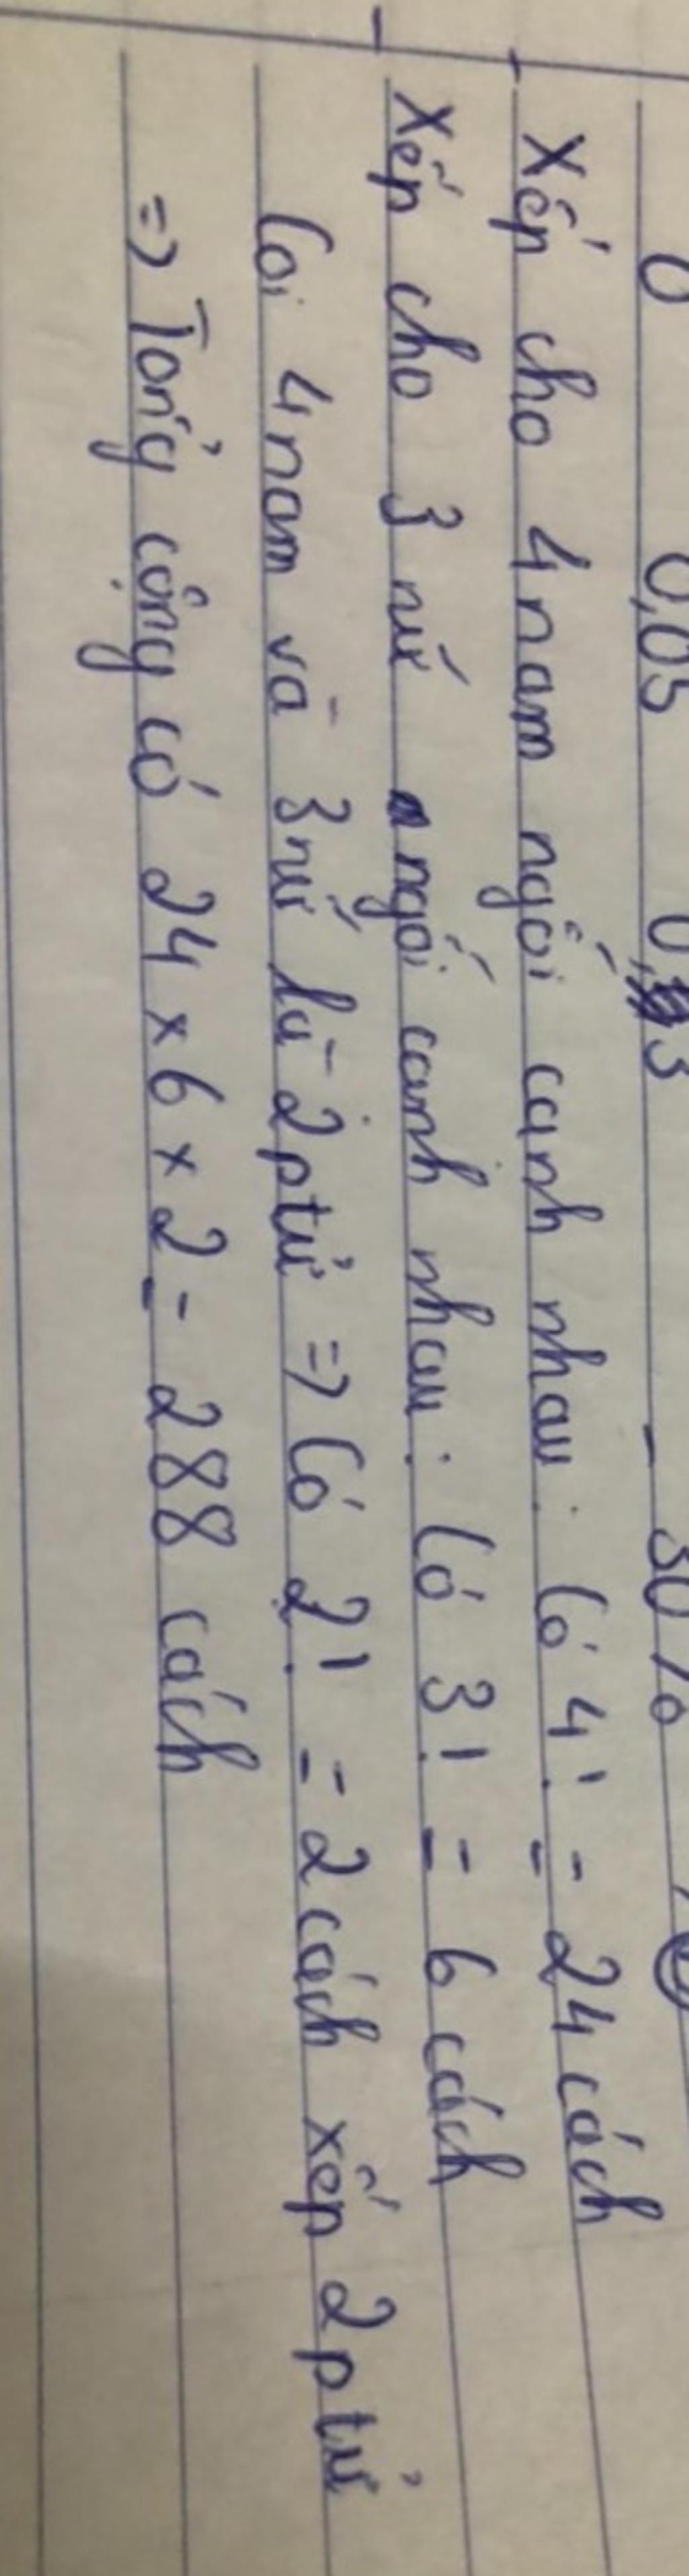 0 0,05 0, 3 - 30%
- Xếp cho 4 nam ngồi cạnh nhau: Có 4! = 24 cách
- Xếp cho 3 nữ ngồi cạnh nhau: Có 3! = 6 cách
Coi 4 nam và 3 nữ là 2 ptử => Có 2! = 2 cách xếp 2 ptử
=> Tổng cộng có 24 x 6 x 2 = 288 cách